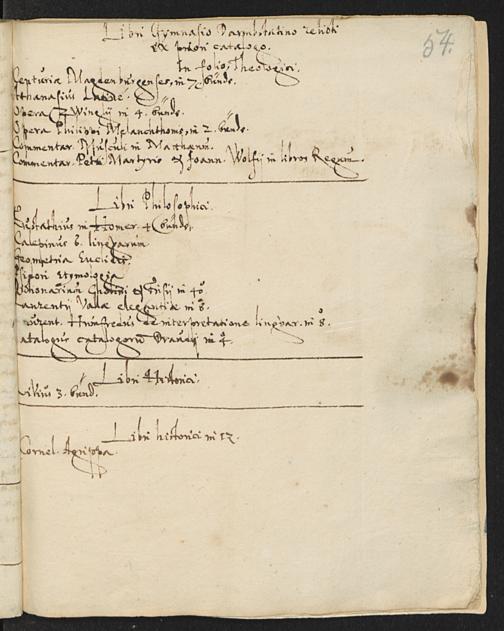 54.
Libri Gymnasio Darmbstatino relicti
ex priori catalogo.
In folio, Theologici.
Centuriæ Magdenburgenses, in 7. bünd.
Athanasius Latine.
Opera Zwinglij in 4. bünd.
Opera Philippi Melanchthonis, in 2. bünd.
Commentar. Musculi in Matthæum.
Commentar. Petri Martyris et Joann. Wolfij in libros Regum.
Libri Philosophici.
Eustathius in Homer. 4 bünd.
Calepinus 6. linguarum
Geometria Euclidis
Isidori Etymologia
Dictionarium et Frisij in 4o.
Laurentij Vallæ elegantiæ in 8.
Laurent. Humfredus de interpretatione linguar. in 8.
Catalogus catalogorum Draudij in 4.
Libri Historici.
Livius 3. bünd.
Libri historici in 12.
Cornel. Agrippa.